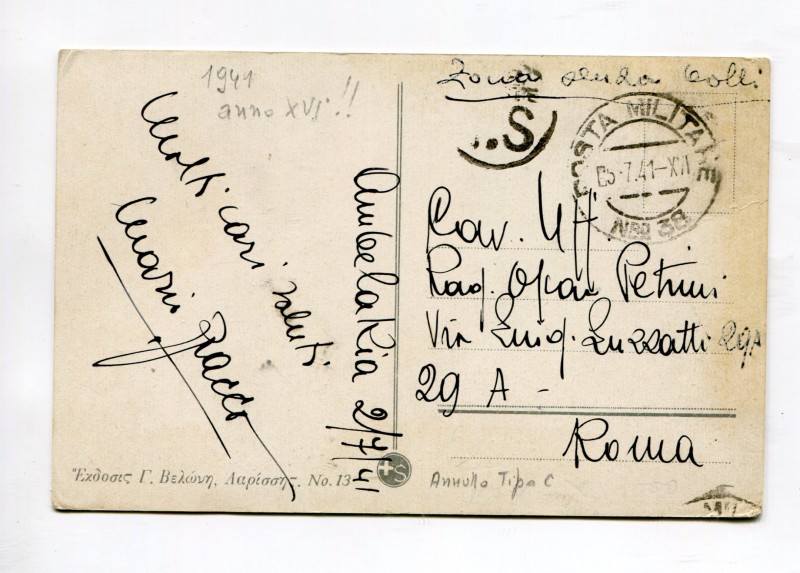 1941
anno XVI!!
Molti cari saluti
Mario
Ambelakia 2/7/41
Zona senza bolli
S
POSTA MILITARE
05.7.41-XI
No. 38
Cav. Uff.
Rag. Oscar Petrini
Via Luig. Luzzatti 29A
29 A -
Roma
Ἔκδοσις Γ. Βελώνη, Λαρίσσης. No. 13
S
Annullo Tipo C